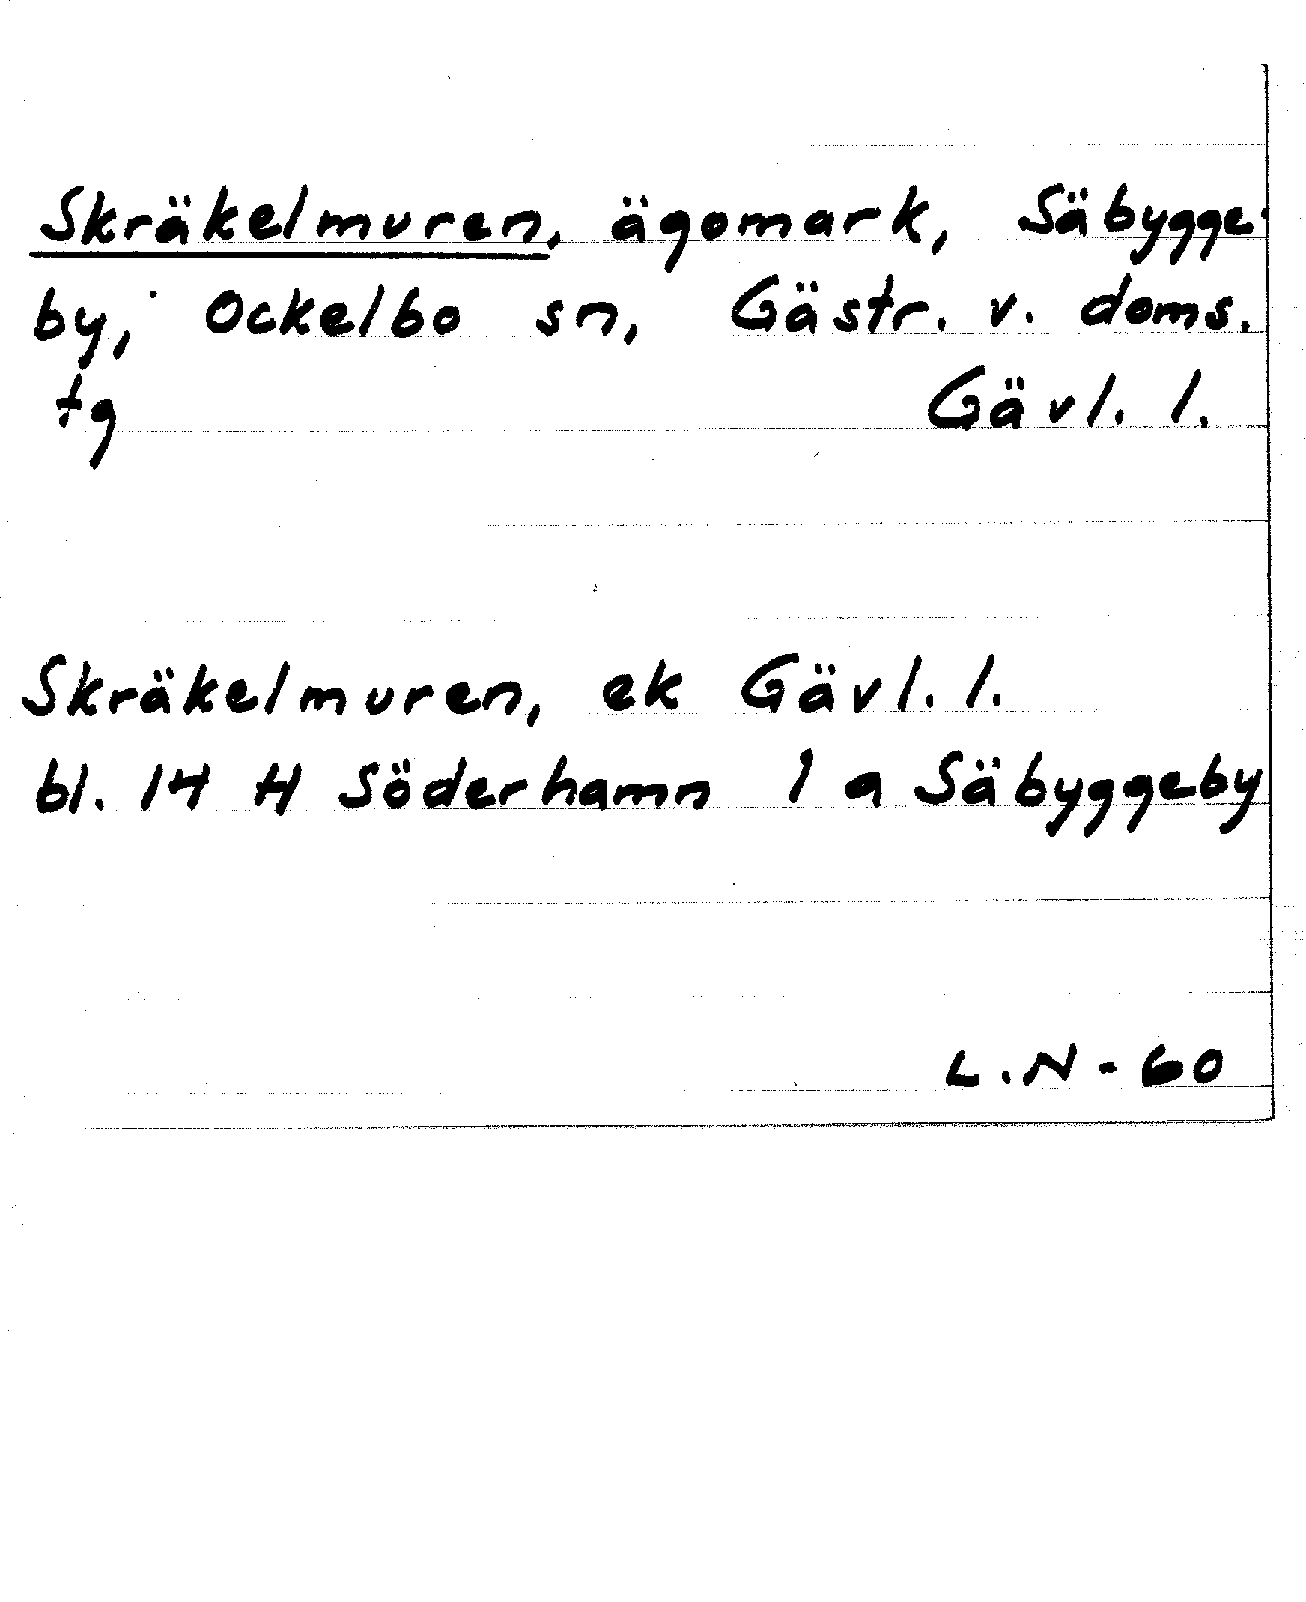 Skräkelmuren, ägomark, Säbygge-
by, Ockelbo sn, Gästr. v. doms.
tg Gävl. l.
Skräkelmuren, ek Gävl. l.
bl. 14 H Söderhamn 1 a Säbyggeby
L.N - 60